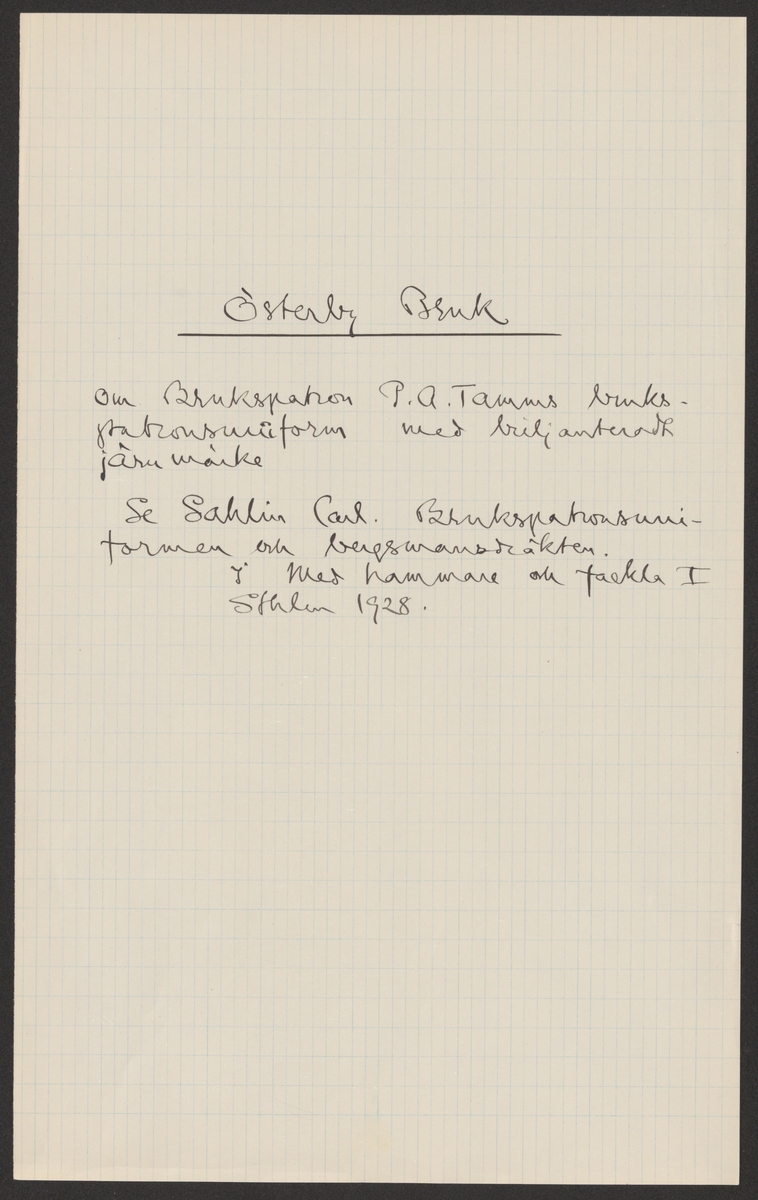 Österby Bruk
om Brukspatron P.A. Tamms bruks-
patronsuniform med briljanteradt
järnmärke
Se Sahlin Carl. Brukspatronsuni-
formen och bergsmansdräkten.
I Med hammare och fackla I
Sthlm 1928.